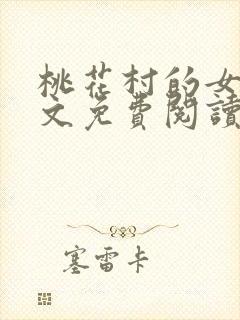 桃花村的女
文免費閱讀
塞雷卡